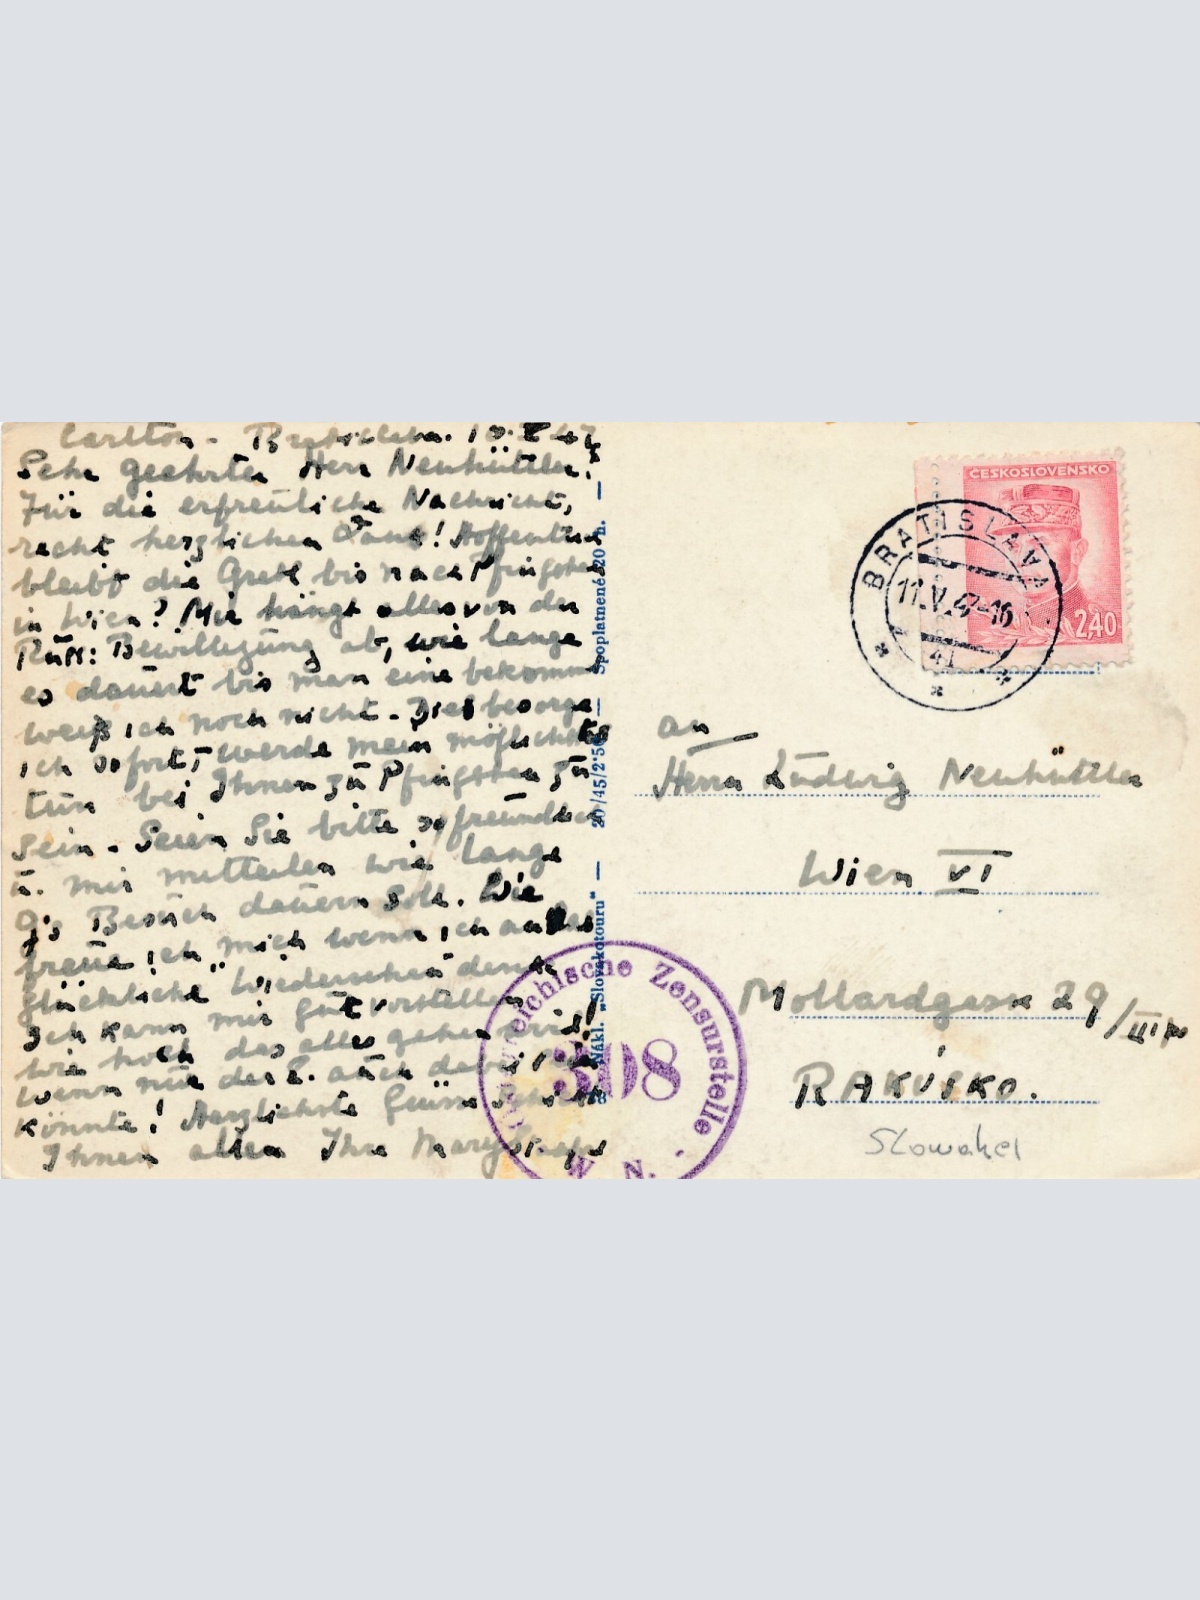 Carlton - Bratislava. 10.V 47
Sehr geehrter Herr Neuhüttler!
Für die erfreuliche Nachricht,
recht herzlichen Dank! Hoffentlich
bleibt die Gretl bis nach Pfingsten
in Wien? Mir hängt alles von der
Russ: Bewilligung ab, wie lange
es dauert bis man eine bekommt
weiß ich noch nicht. Dies besorge
ich sofort, werde mein möglichstes
tun bei Ihnen zu Pfingsten zu
sein. Seien Sie bitte so freundlich
u. mir mitteilen wie lange
G's Besuch dauern soll. Wie
freue ich mich wenn ich an das
glückliche "Wiedersehen" denke
Ich kann mir gut vorstellen
wie hoch das alles gehen wird!
wenn nur der L. auch dabei sein
könnte! Herzlichste Grüsse
Ihnen allen Ihre Mary
Nákl. „Slovakotouru“ — 20/45/2·50 — Spoplatmené 20 h. —
ČESKOSLOVENSKO
2,40
BRATISLAVA
11.V.47-16
an
Herrn Ludwig Neuhüttler
Wien VI
Mollardgasse 29/III
RAKÚSKO.
Slowakei
Zensurstelle
W N.